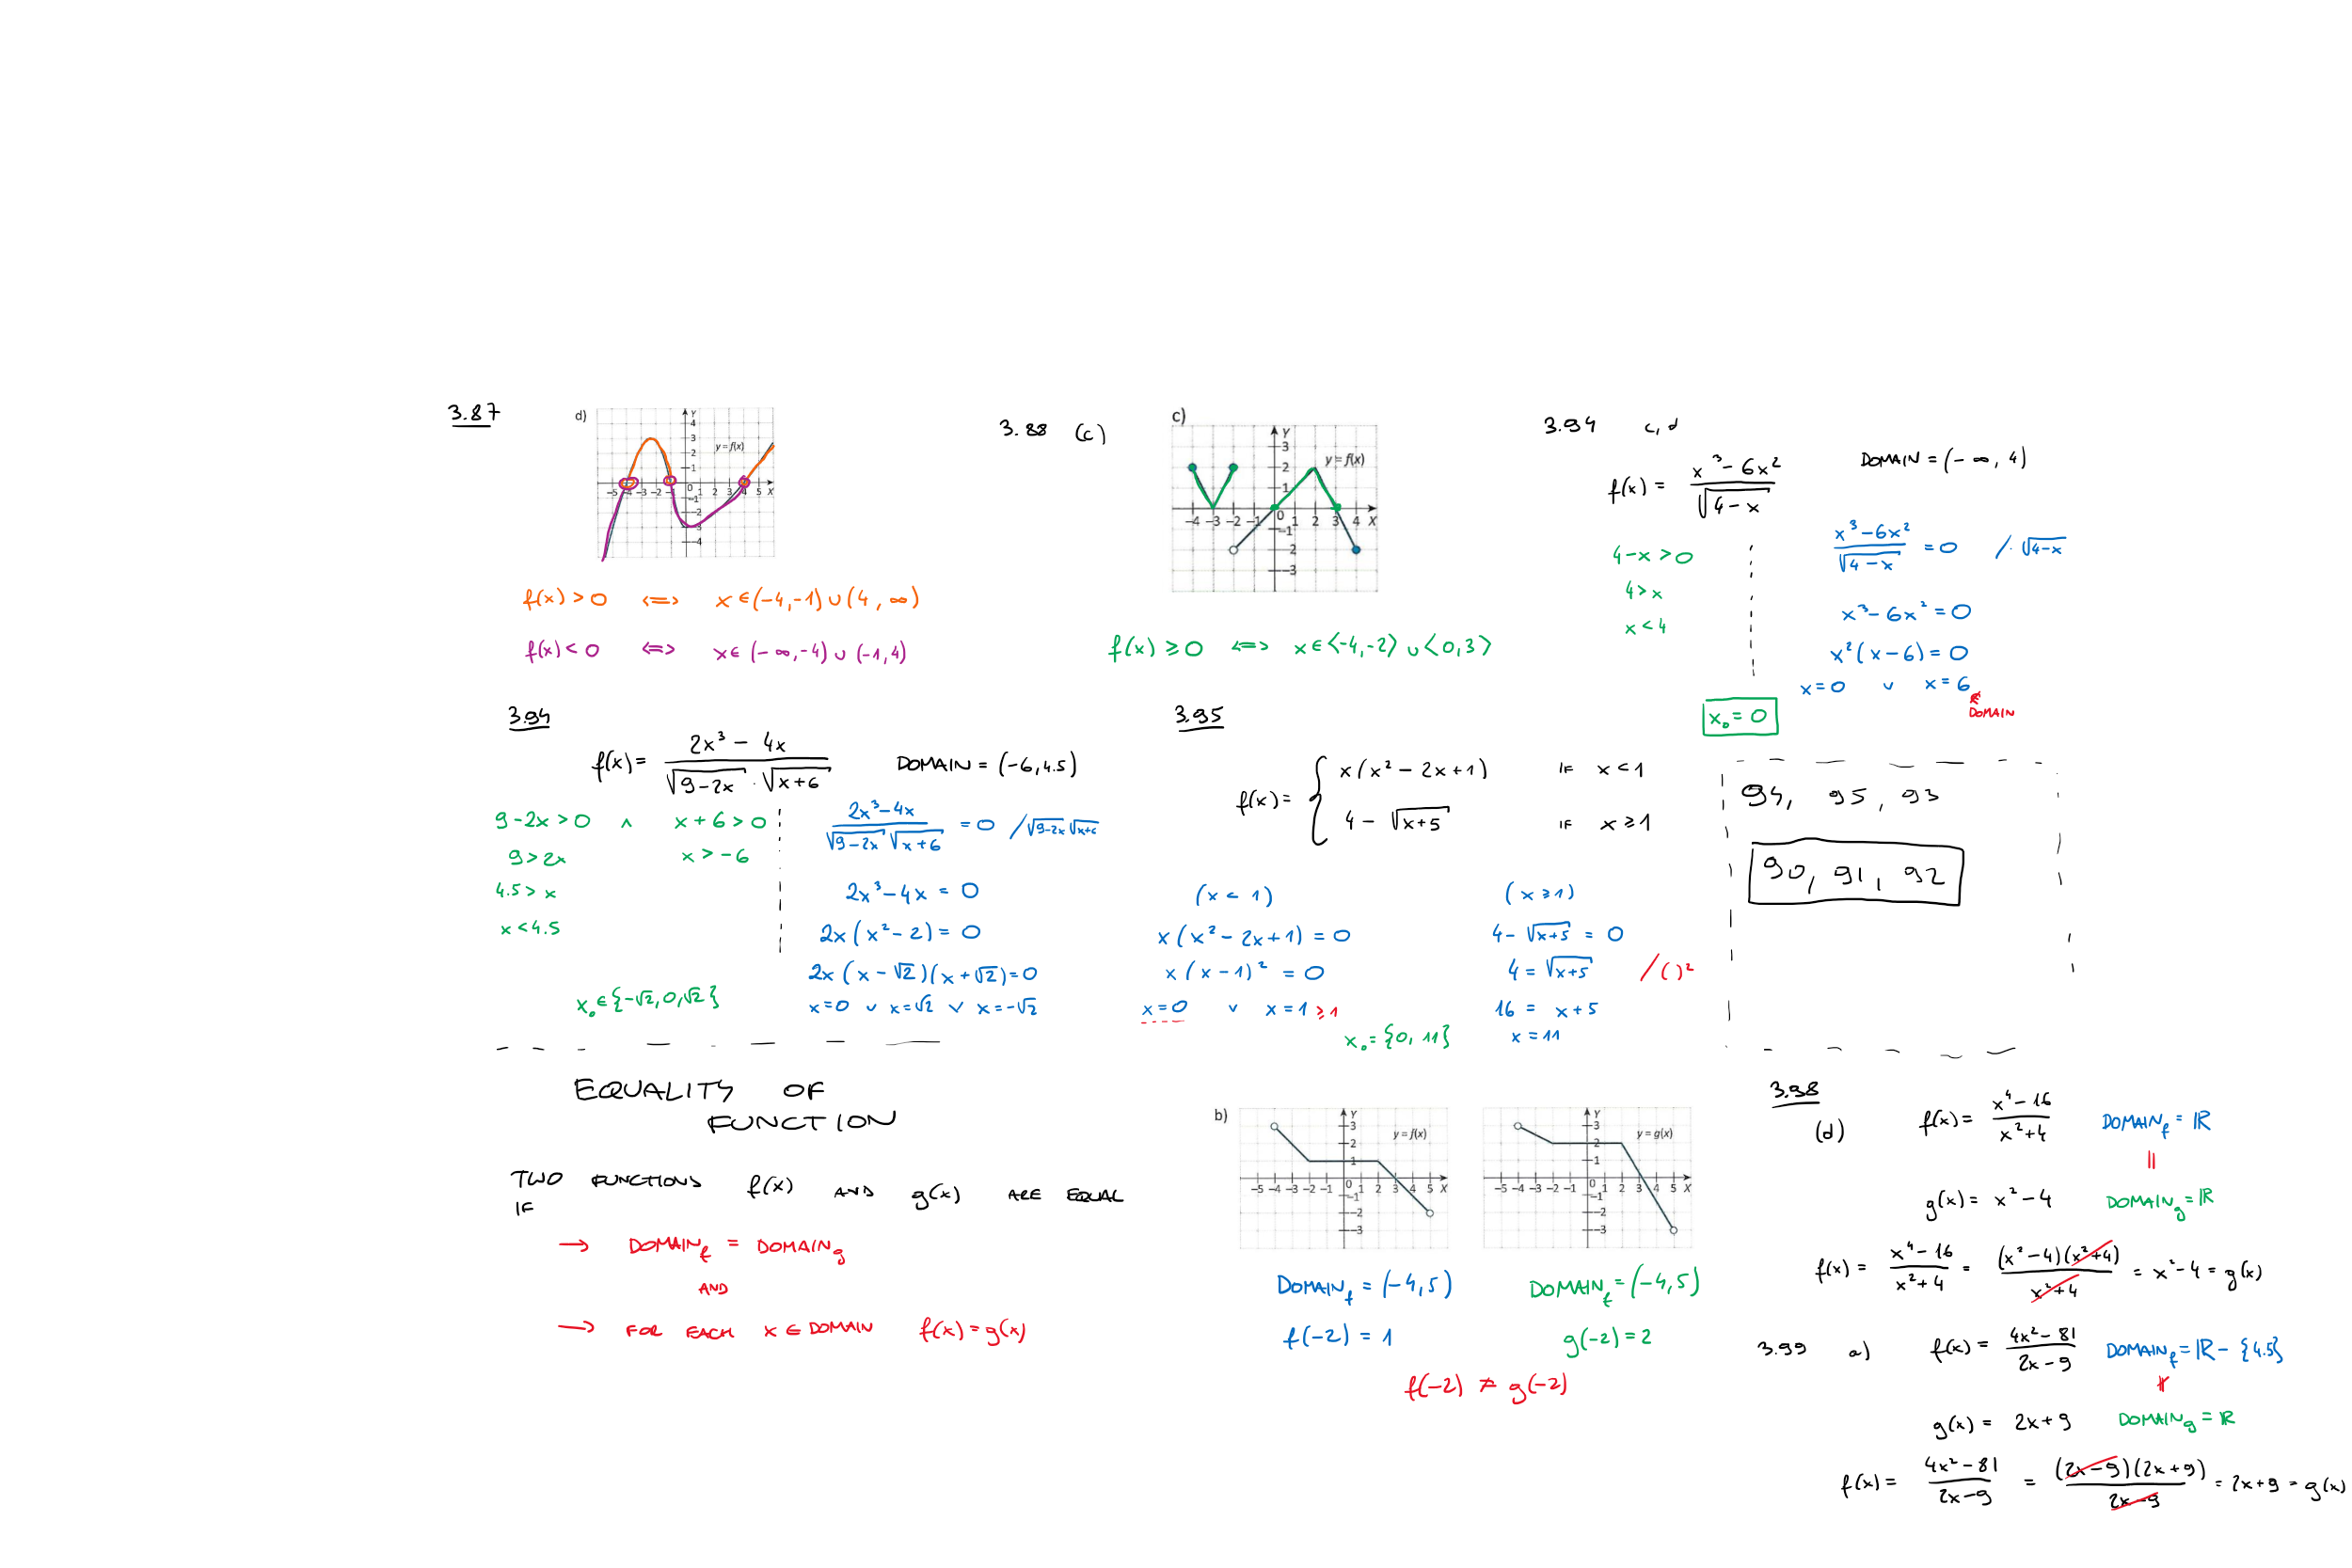 3.87
d)
Y
y = f(x)
f(x) > 0 <=> x ∈ (-4,-1) ∪ (4, ∞)
f(x) < 0 <=> x ∈ (-∞,-4) ∪ (-1,4)
3.88 (c)
c)
Y
y = f(x)
-4 -3 -2 -1 0 1 2 3 4 X
f(x) ⩾ 0 <=> x ∈ <-4,-2> ∪ <0,3>
3.94 c, d
f(x) = (x³ - 6x²) / √(4-x)
DOMAIN = (-∞, 4)
4-x > 0
4 > x
x < 4
(x³ - 6x²) / √(4-x) = 0 /· √(4-x)
x³ - 6x² = 0
x²(x-6) = 0
x = 0 ∨ x = 6
∉ DOMAIN
x₀ = 0
3.94
f(x) = (2x³ - 4x) / (√(9-2x) · √(x+6))
DOMAIN = (-6, 4.5)
9-2x > 0 ∧ x+6 > 0
9 > 2x
x > -6
4.5 > x
x < 4.5
(2x³-4x) / (√(9-2x) √(x+6)) = 0 /√(9-2x) √(x+6)
2x³ - 4x = 0
2x(x² - 2) = 0
2x(x - √2)(x + √2) = 0
x = 0 ∨ x = √2 ∨ x = -√2
x₀ ∈ {-√2, 0, √2}
3.95
f(x) = { x(x² - 2x + 1) IF x < 1
4 - √(x+5) IF x ⩾ 1
(x < 1)
x(x² - 2x + 1) = 0
x(x-1)² = 0
x = 0 ∨ x = 1 ⩾ 1
(x ⩾ 1)
4 - √(x+5) = 0
4 = √(x+5) /( )²
16 = x + 5
x = 11
x₀ = {0, 11}
94, 95, 93
90, 91, 92
EQUALITY OF
FUNCTION
TWO FUNCTIONS f(x) AND g(x) ARE EQUAL
IF
→ DOMAIN_f = DOMAIN_g
AND
→ FOR EACH x ∈ DOMAIN f(x) = g(x)
b)
Y
y = f(x)
-5 -4 -3 -2 -1 0 1 2 3 4 5 X
Y
y = g(x)
-5 -4 -3 -2 -1 0 1 2 3 4 5 X
DOMAIN_f = (-4,5)
DOMAIN_f = (-4,5)
f(-2) = 1
g(-2) = 2
f(-2) ≠ g(-2)
3.98
(d)
f(x) = (x⁴ - 16) / (x² + 4)
DOMAIN_f = ℝ
||
g(x) = x² - 4
DOMAIN_g = ℝ
f(x) = (x⁴ - 16) / (x² + 4) = (x² - 4)(x² + 4) / (x² + 4) = x² - 4 = g(x)
3.99 a)
f(x) = (4x² - 81) / (2x - 9)
DOMAIN_f = ℝ - {4.5}
∦
g(x) = 2x + 9
DOMAIN_g = ℝ
f(x) = (4x² - 81) / (2x - 9) = (2x - 9)(2x + 9) / (2x - 9) = 2x + 9 = g(x)